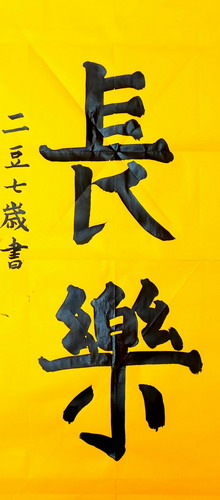 長樂
二豆七歲書